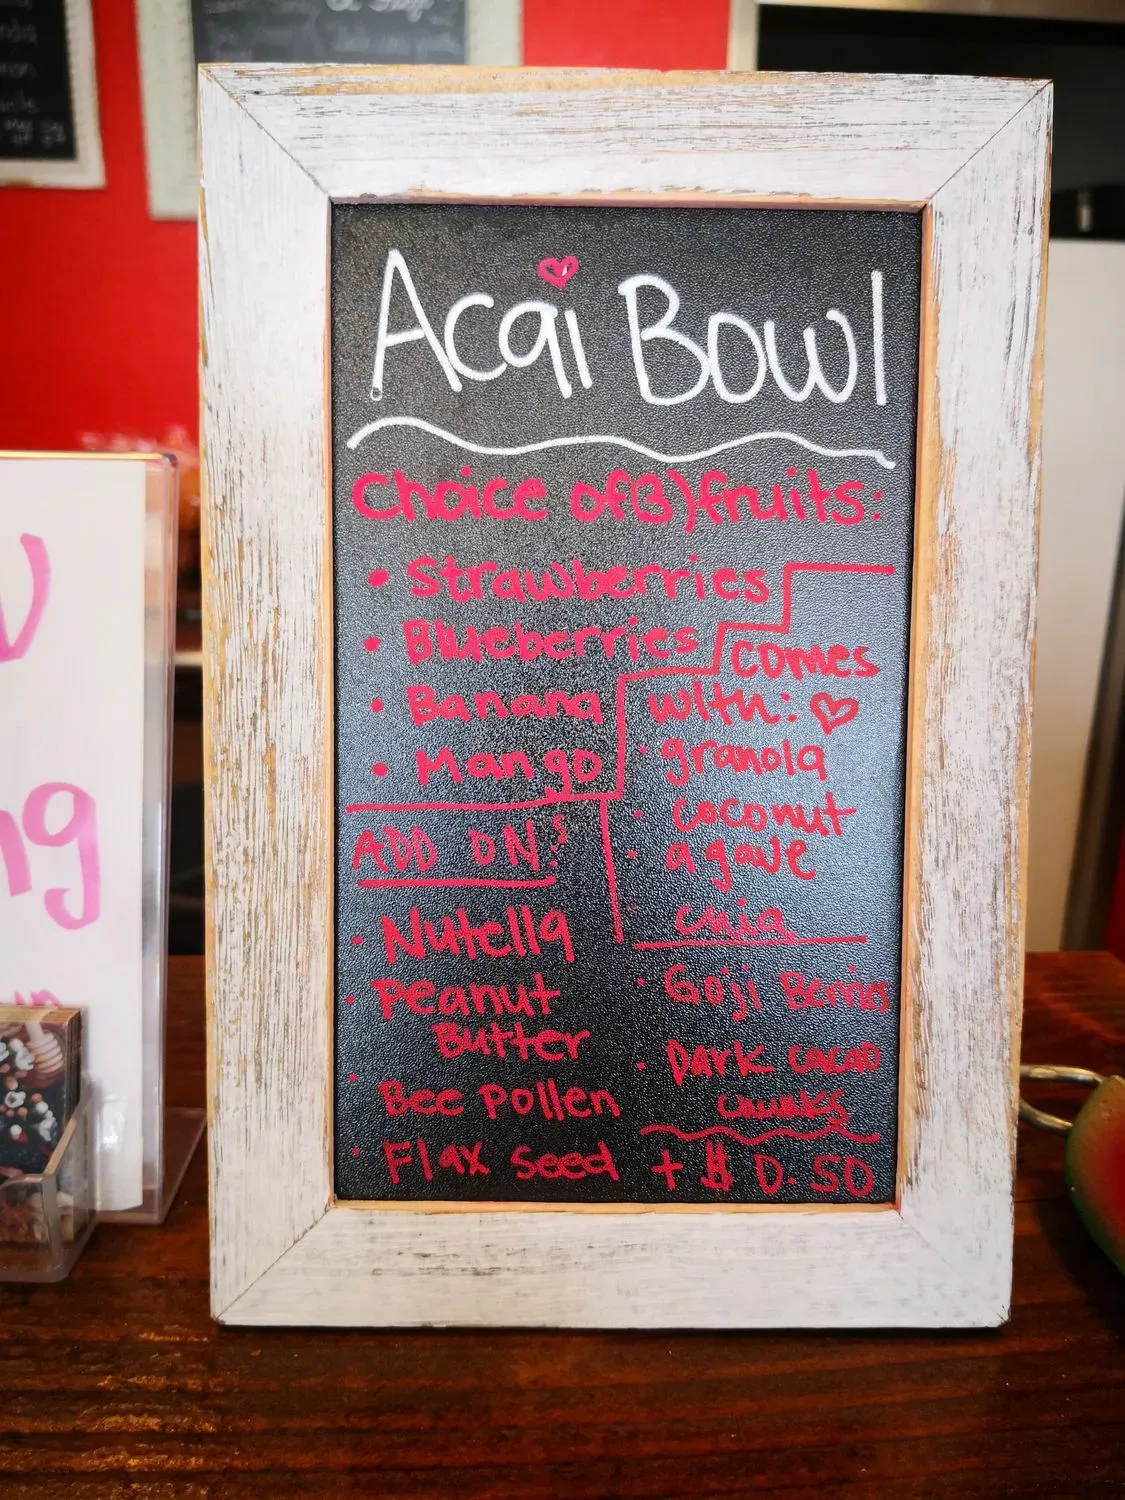 Acai Bowl
Choice of (3) fruits:
• Strawberries
• Blueberries
• Banana
• Mango
comes
with:
· granola
· coconut
· agave
· chia
ADD ON'S
· Nutella
· Peanut
Butter
· Bee Pollen
· Flax Seed
· Goji Berries
· Dark cacao
chunks
+ $0.50